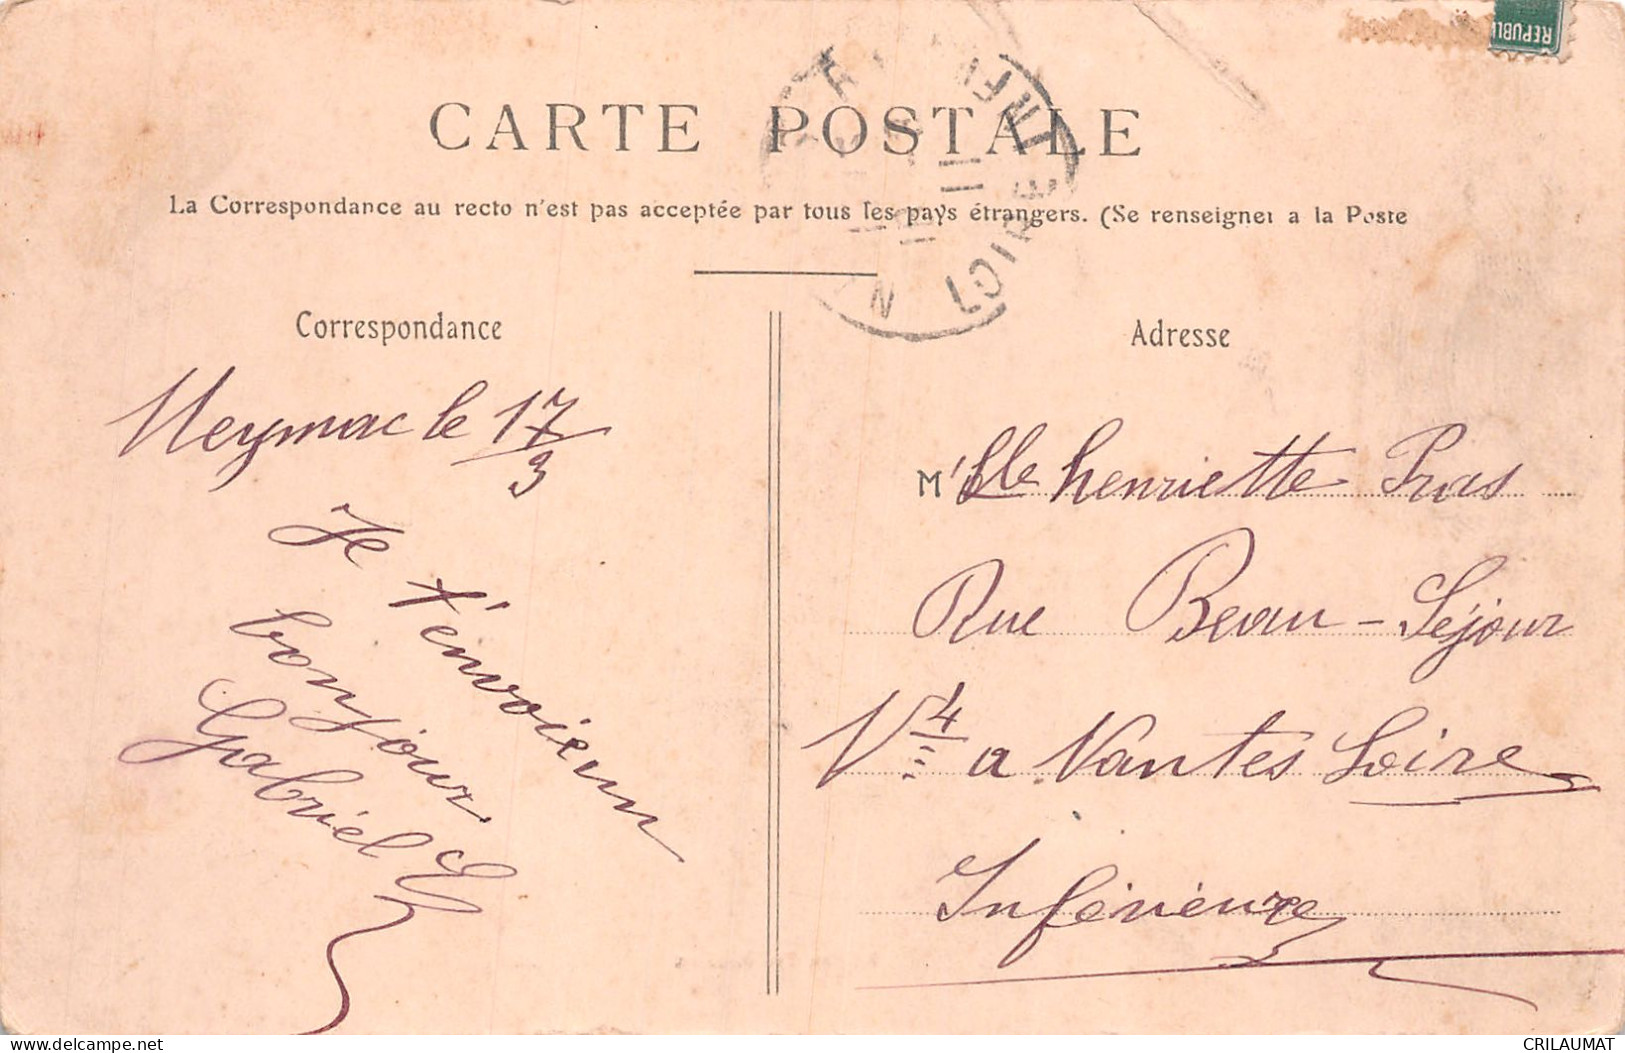 REPUBL
CARTE POSTALE
LOIRE INF
La Correspondance au recto n'est pas acceptée par tous les pays étrangers. (Se renseigner a la Poste
Correspondance
Meymac le 17/3
Je t'envoie un
bonjour
Gabriel
Adresse
Mlle henriette Pras
Rue Beau-Séjour
N° 4 a Nantes Loire
Inférieure
delcampe.net
CRILAUMAT